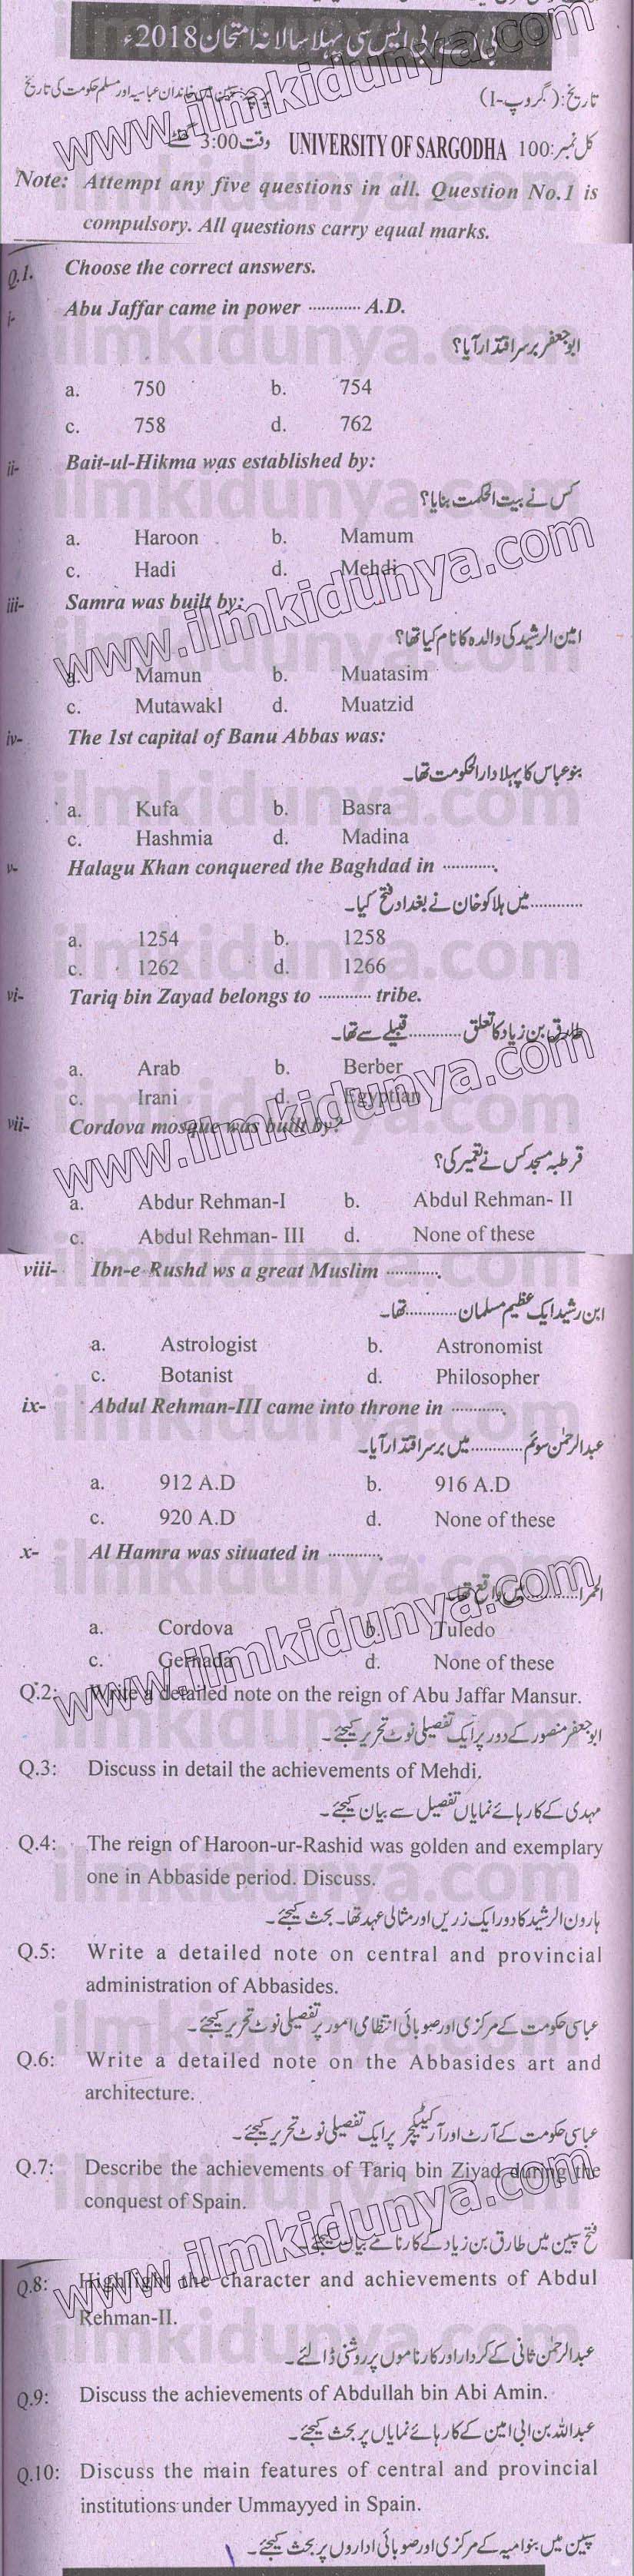 بی اے / بی ایس سی پہلا سالانہ امتحان 2018ء
تاریخ: (گروپ-I) پرچہ: سپین میں خاندان عباسیہ اور مسلم حکومت کی تاریخ
کل نمبر: 100 UNIVERSITY OF SARGODHA وقت 3:00 گھنٹے
Note: Attempt any five questions in all. Question No.1 is
compulsory. All questions carry equal marks.
Q.1. Choose the correct answers.
i- Abu Jaffar came in power ............ A.D.
ابو جعفر برسر اقتدار آیا؟
a. 750 b. 754
c. 758 d. 762
ii- Bait-ul-Hikma was established by:
کس نے بیت الحکمت بنایا؟
a. Haroon b. Mamum
c. Hadi d. Mehdi
iii- Samra was built by:
امین الرشید کی والدہ کا نام کیا تھا؟
a. Mamun b. Muatasim
c. Mutawakl d. Muatzid
iv- The 1st capital of Banu Abbas was:
بنو عباس کا پہلا دارالحکومت تھا۔
a. Kufa b. Basra
c. Hashmia d. Madina
v- Halagu Khan conquered the Baghdad in ............
............ میں ہلاکو خان نے بغداد فتح کیا۔
a. 1254 b. 1258
c. 1262 d. 1266
vi- Tariq bin Zayad belongs to ............ tribe.
طارق بن زیاد کا تعلق ............ قبیلے سے تھا۔
a. Arab b. Berber
c. Irani d. Egyptian
vii- Cordova mosque was built by?
قرطبہ مسجد کس نے تعمیر کی؟
a. Abdur Rehman-I b. Abdul Rehman- II
c. Abdul Rehman- III d. None of these
viii- Ibn-e-Rushd ws a great Muslim ............
ابن رشید ایک عظیم مسلمان ............ تھا۔
a. Astrologist b. Astronomist
c. Botanist d. Philosopher
ix- Abdul Rehman-III came into throne in ............
عبدالرحمٰن سوئم ............ میں برسر اقتدار آیا۔
a. 912 A.D b. 916 A.D
c. 920 A.D d. None of these
x- Al Hamra was situated in ............
الحمرا ............ میں واقع تھا۔
a. Cordova b. Tuledo
c. Gernada d. None of these
Q.2: Write a detailed note on the reign of Abu Jaffar Mansur.
ابو جعفر منصور کے دور پر ایک تفصیلی نوٹ تحریر کیجئے۔
Q.3: Discuss in detail the achievements of Mehdi.
مہدی کے کارہائے نمایاں تفصیل سے بیان کیجئے۔
Q.4: The reign of Haroon-ur-Rashid was golden and exemplary
one in Abbaside period. Discuss.
ہارون الرشید کا دور ایک زریں اور مثالی عہد تھا۔ بحث کیجئے۔
Q.5: Write a detailed note on central and provincial
administration of Abbasides.
عباسی حکومت کے مرکزی اور صوبائی انتظامی امور پر تفصیلی نوٹ تحریر کیجئے۔
Q.6: Write a detailed note on the Abbasides art and
architecture.
عباسی حکومت کے آرٹ اور آرکیٹیکچر پر ایک تفصیلی نوٹ تحریر کیجئے۔
Q.7: Describe the achievements of Tariq bin Ziyad during the
conquest of Spain.
فتح سپین میں طارق بن زیاد کے کارنامے بیان کیجئے۔
Q.8: Highlight the character and achievements of Abdul
Rehman-II.
عبدالرحمٰن ثانی کے کردار اور کارناموں پر روشنی ڈالئے۔
Q.9: Discuss the achievements of Abdullah bin Abi Amin.
عبداللہ بن ابی امین کے کارہائے نمایاں پر بحث کیجئے۔
Q.10: Discuss the main features of central and provincial
institutions under Ummayyed in Spain.
سپین میں بنو امیہ کے مرکزی اور صوبائی اداروں پر بحث کیجئے۔
www.ilmkidunya.com